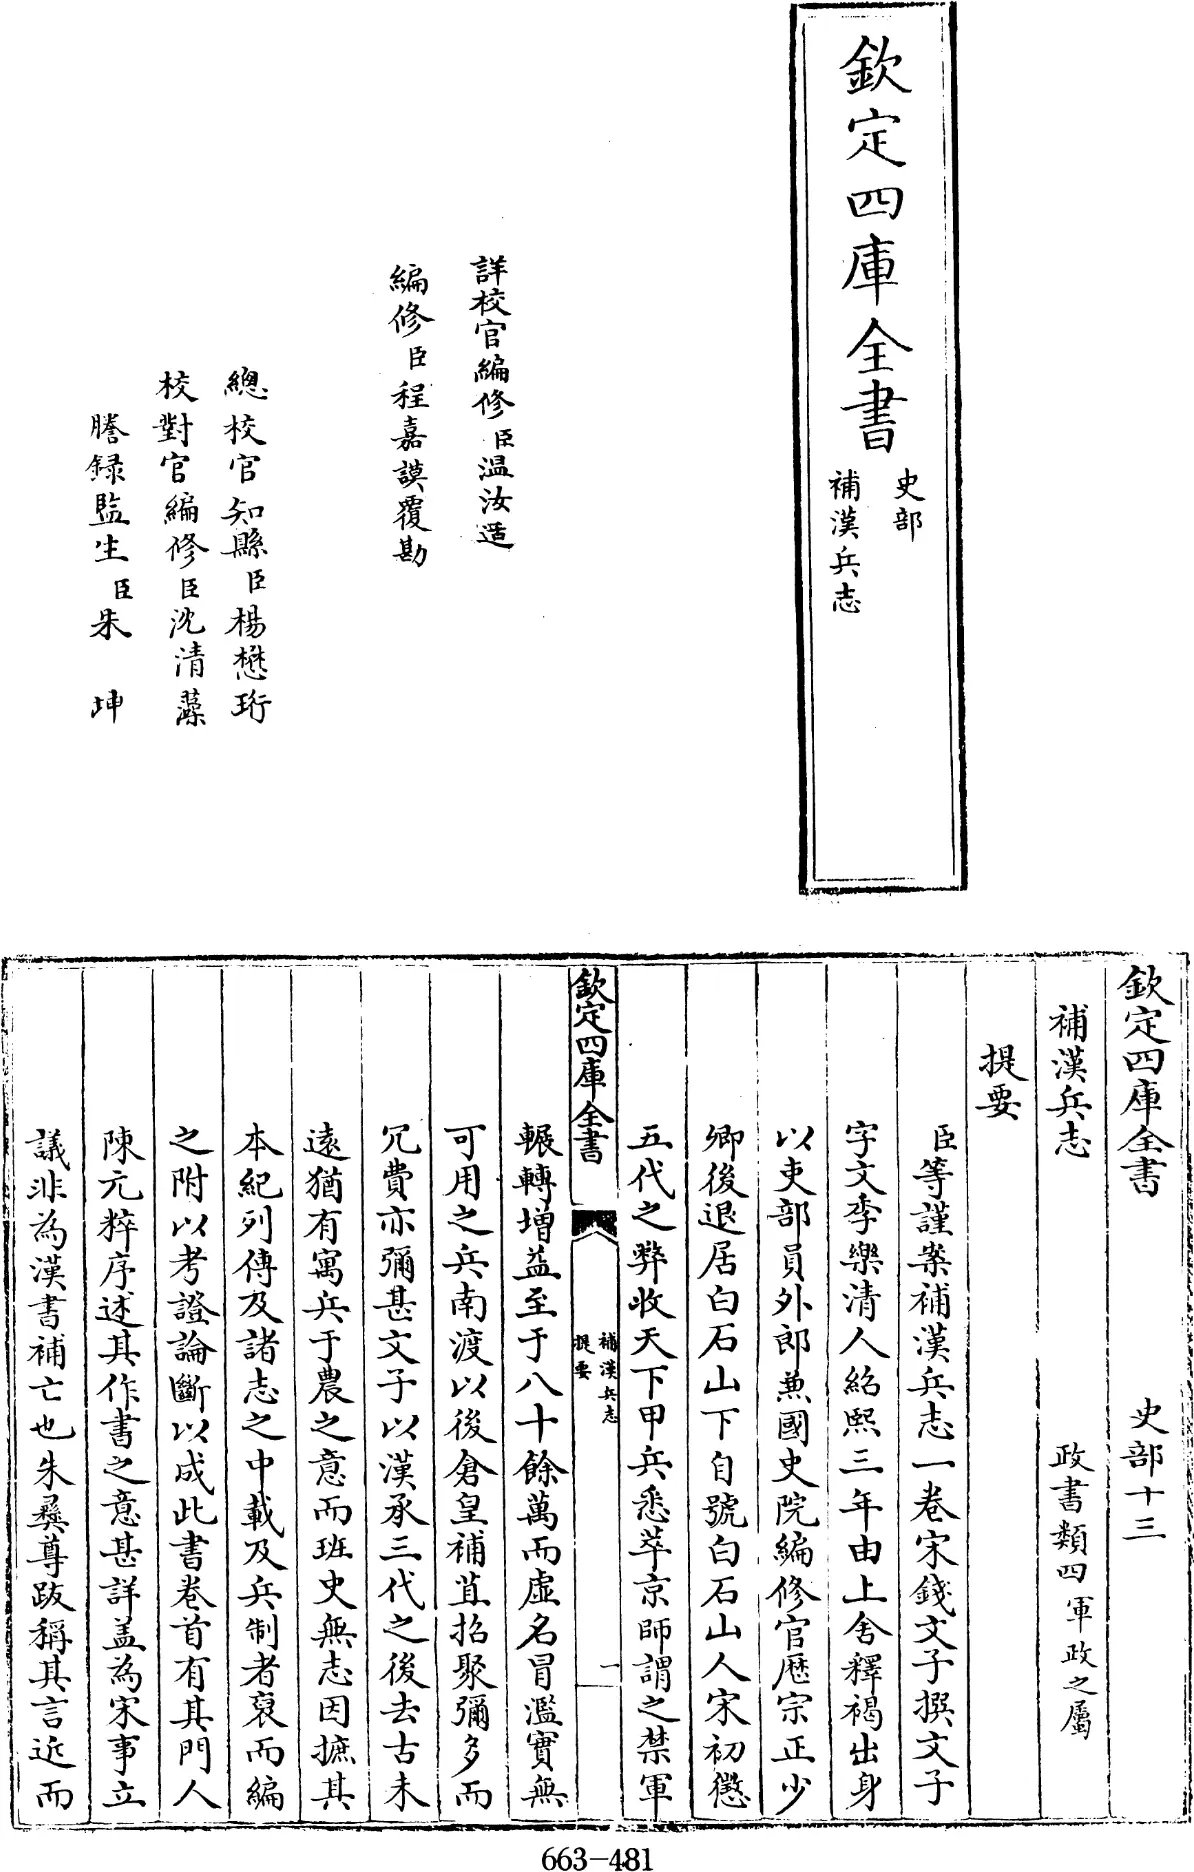 欽定四庫全書
史部
補漢兵志
詳校官編修臣温汝适
編修臣程嘉謨覆勘
總校官知縣臣楊懋珩
校對官編修臣沈清藻
謄録監生臣朱坤
欽定四庫全書 史部十三
補漢兵志 政書類四軍政之屬
提要
臣等謹案補漢兵志一卷宋錢文子撰文子
字文季樂清人紹熙三年由上舍釋褐出身
以吏部員外郎兼國史院編修官歴宗正少
卿後退居白石山下自號白石山人宋初懲
五代之弊收天下甲兵悉萃京師謂之禁軍
欽定四庫全書
補漢兵志
提要
一
輾轉增益至于八十餘萬而虛名冒濫實無
可用之兵南渡以後倉皇補苴招聚彌多而
冗費亦彌甚文子以漢承三代之後去古未
遠猶有寓兵于農之意而班史無志因摭其
本紀列傳及諸志之中載及兵制者裒而編
之附以考證論斷以成此書卷首有其門人
陳元粹序述其作書之意甚詳盖為宋事立
議非為漢書補亡也朱彞尊跋稱其言近而
663-481